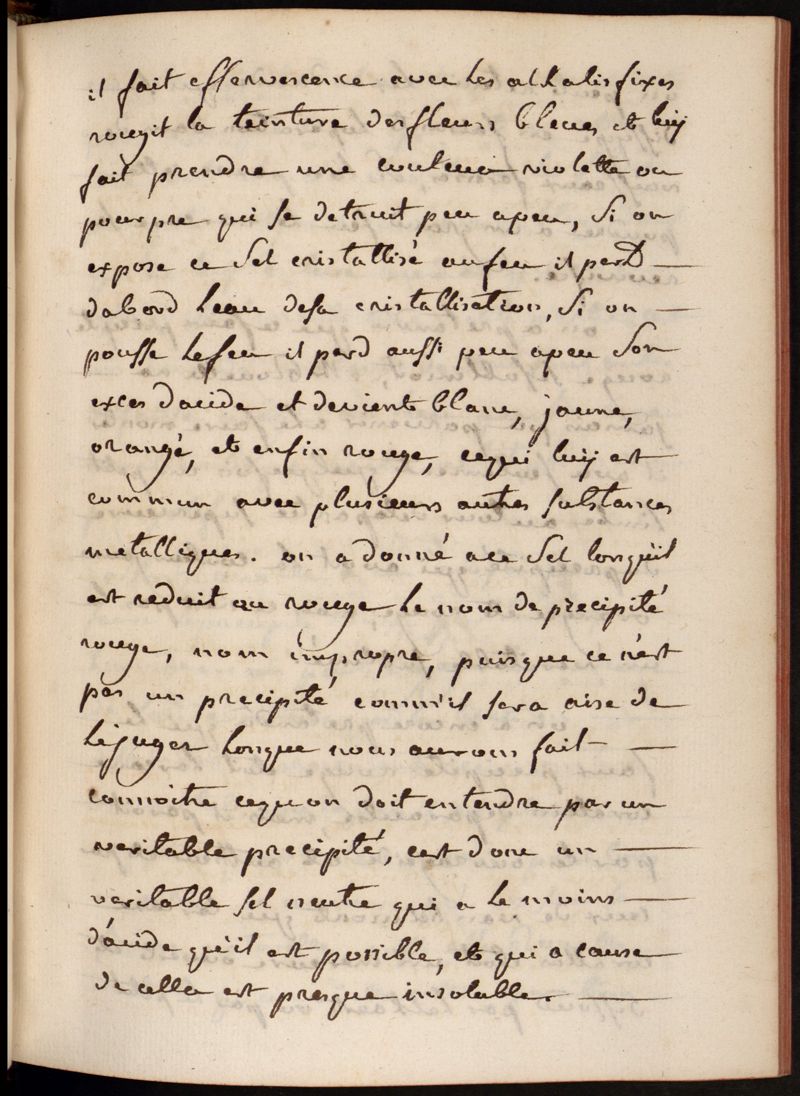 il fait effervescence avec les alkalis fixes
rougit la teinture des fleurs bleues et luy
fait prendre une couleur violette ou
pourpre qui se detruit peu apeu, Si on
expose ce Sel cristallisé au feu il perd —
dabord leau desa cristallisation, Si on —
pousse lefeu il perd aussi peu apeu Son
exces dacide et devient blanc, jaune,
orangé, et enfin rouge, cequi luy est
commun avec plusieurs autres substances
metalliques. on a donné ace Sel lorsqu'il
est reduit au rouge le nom de precipité
rouge, nom impropre, puisque ce n'est
pas un precipité comm'il sera aise de
lejuger lorsque nous aurons fait —
connoitre cequon doit entendre par un
veritable precipité, cest donc un —
veritable sel neutre qui a le moins —
d'acide qu'il est possible, et qui a cause
de cella est presque insoluble. —